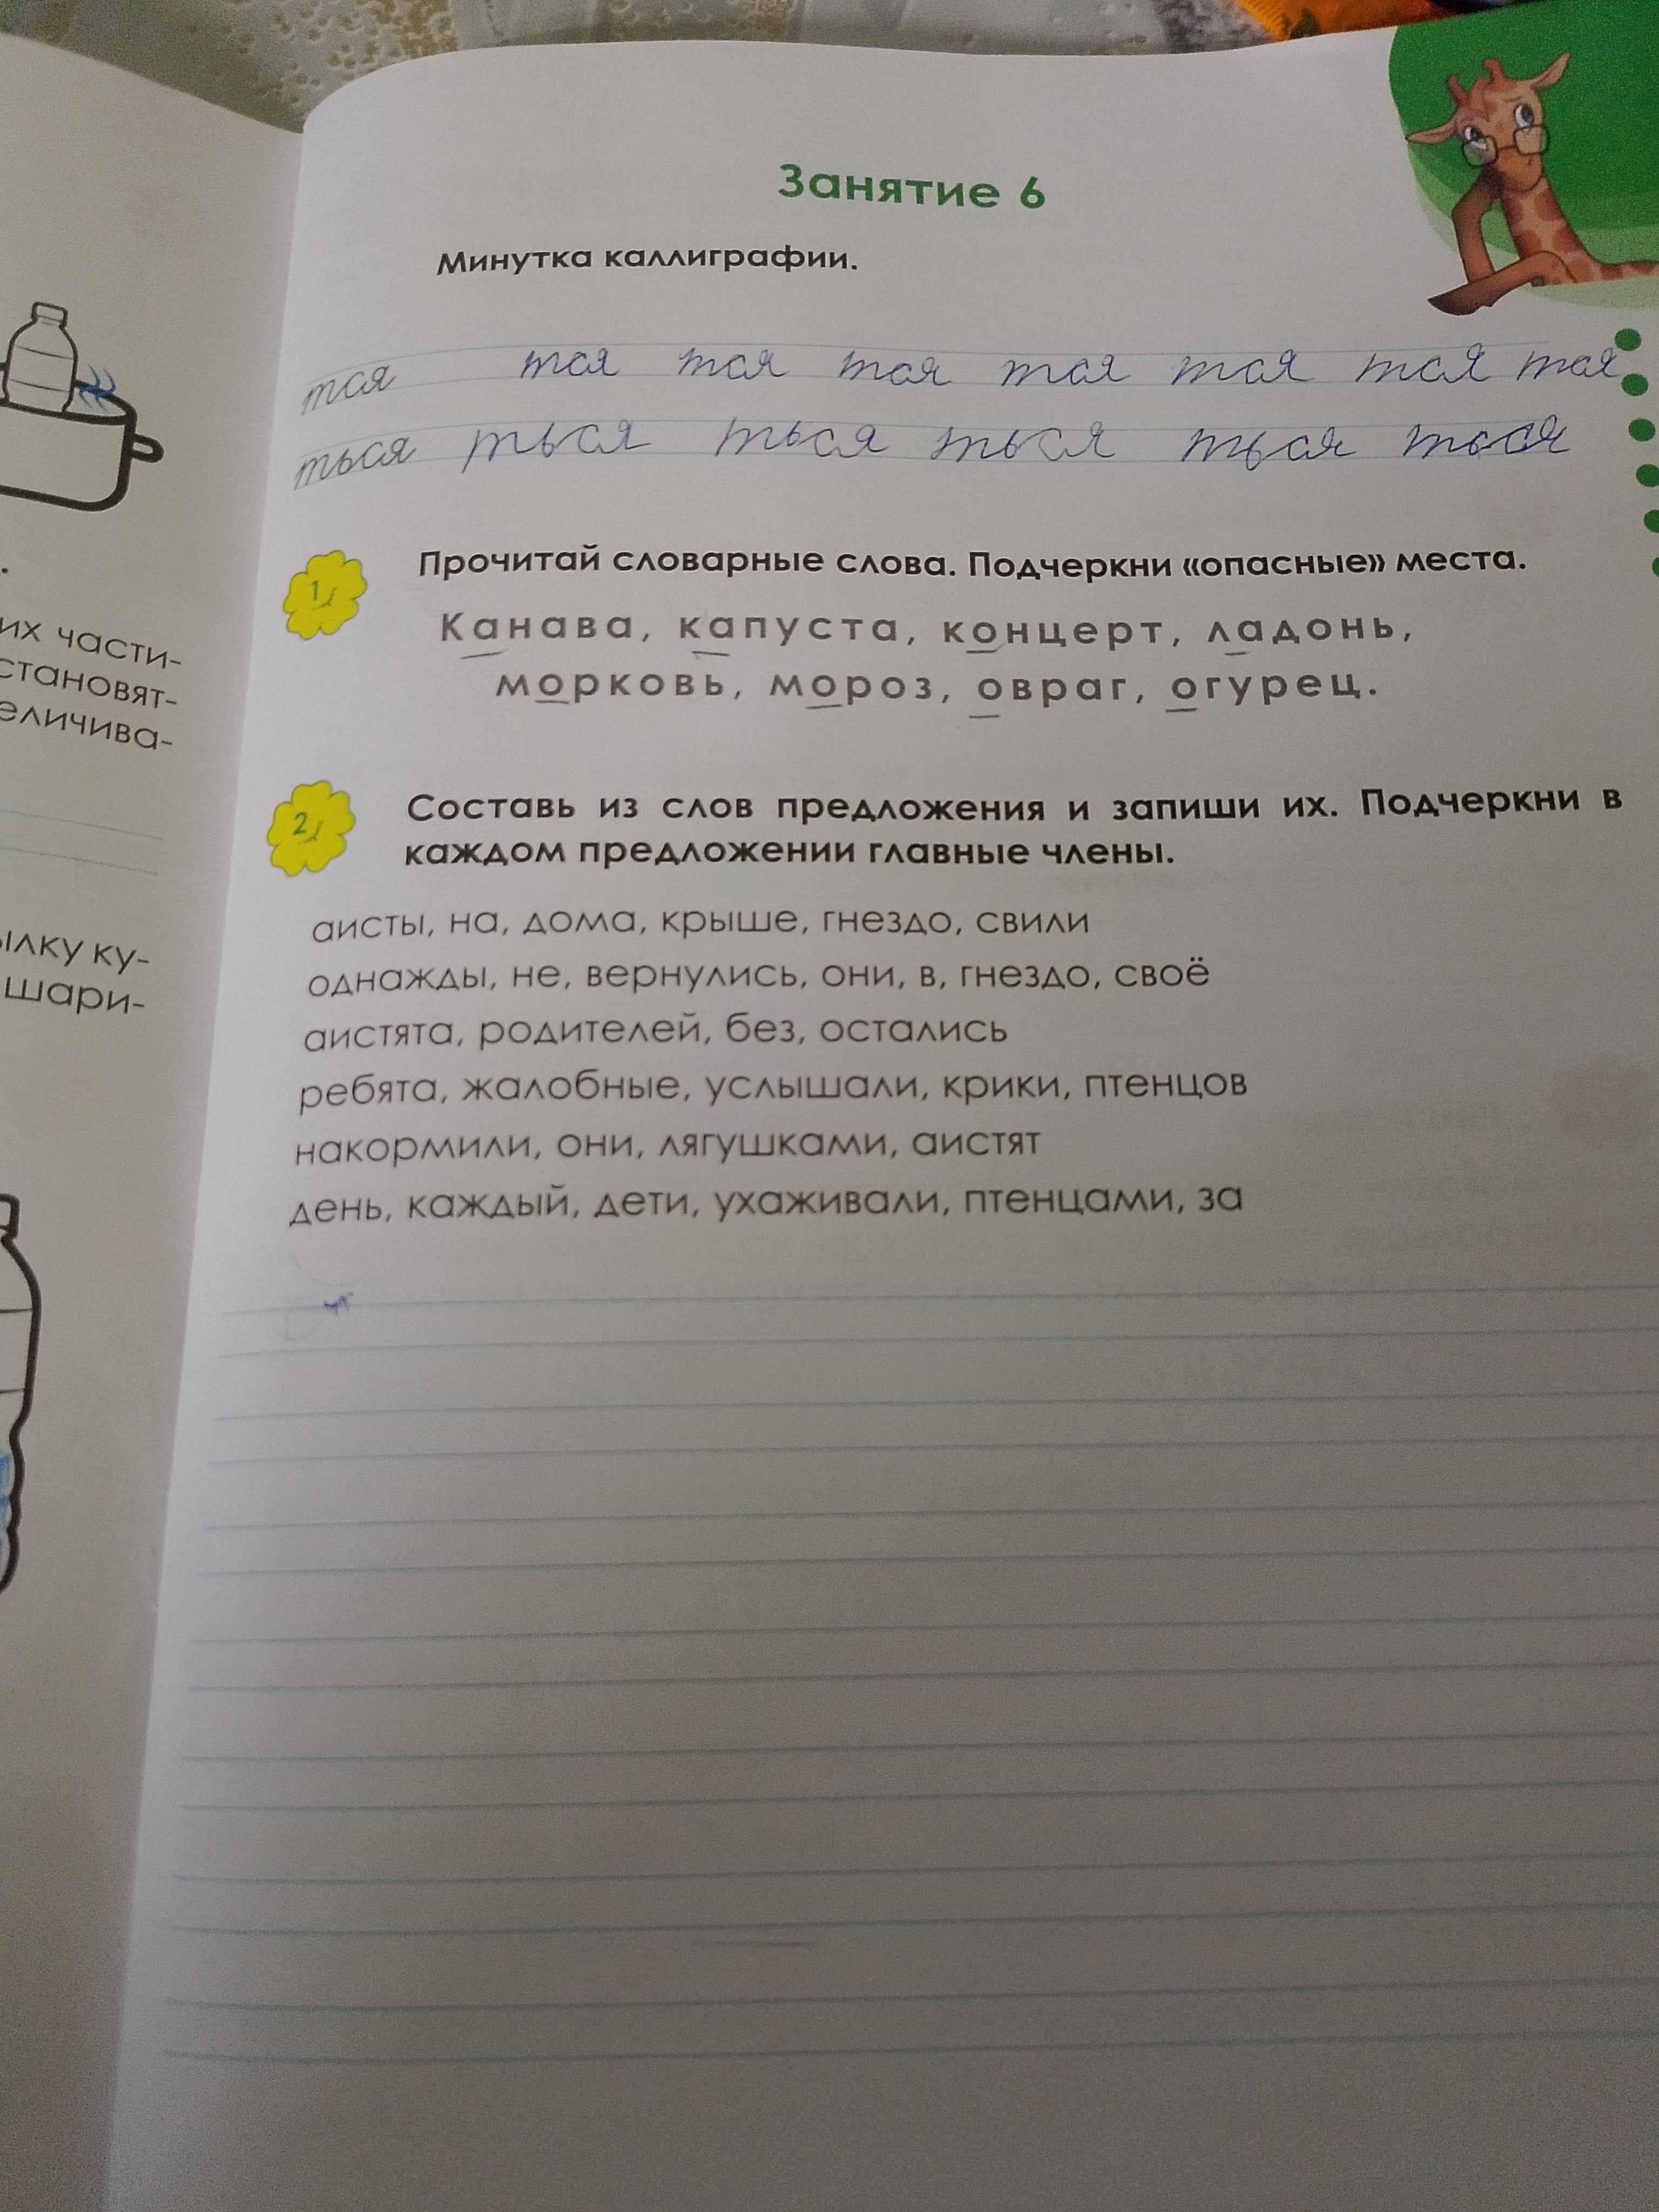 их части-
становят-
еличива-
ылку ку-
шари-
Занятие 6
Минутка каллиграфии.
тся тся тся тся тся тся тся тся
ться ться ться ться ться ться
1
Прочитай словарные слова. Подчеркни «опасные» места.
Канава, капуста, концерт, ладонь,
морковь, мороз, овраг, огурец.
2
Составь из слов предложения и запиши их. Подчеркни в
каждом предложении главные члены.
аисты, на, дома, крыше, гнездо, свили
однажды, не, вернулись, они, в, гнездо, своё
аистята, родителей, без, остались
ребята, жалобные, услышали, крики, птенцов
накормили, они, лягушками, аистят
день, каждый, дети, ухаживали, птенцами, за